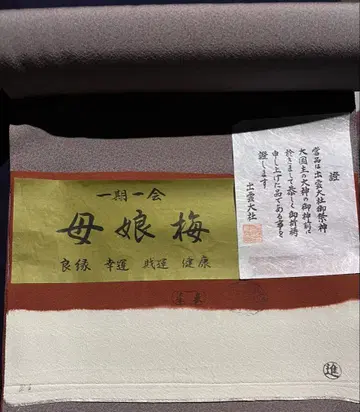 一期一会
母娘梅
良縁 幸運 財運 健康
證
當品は出雲大社御祭神
大国主の大神の御神前に
於きまして恭しく御祈祷
申し上げた品である事を
證します
出雲大社
進